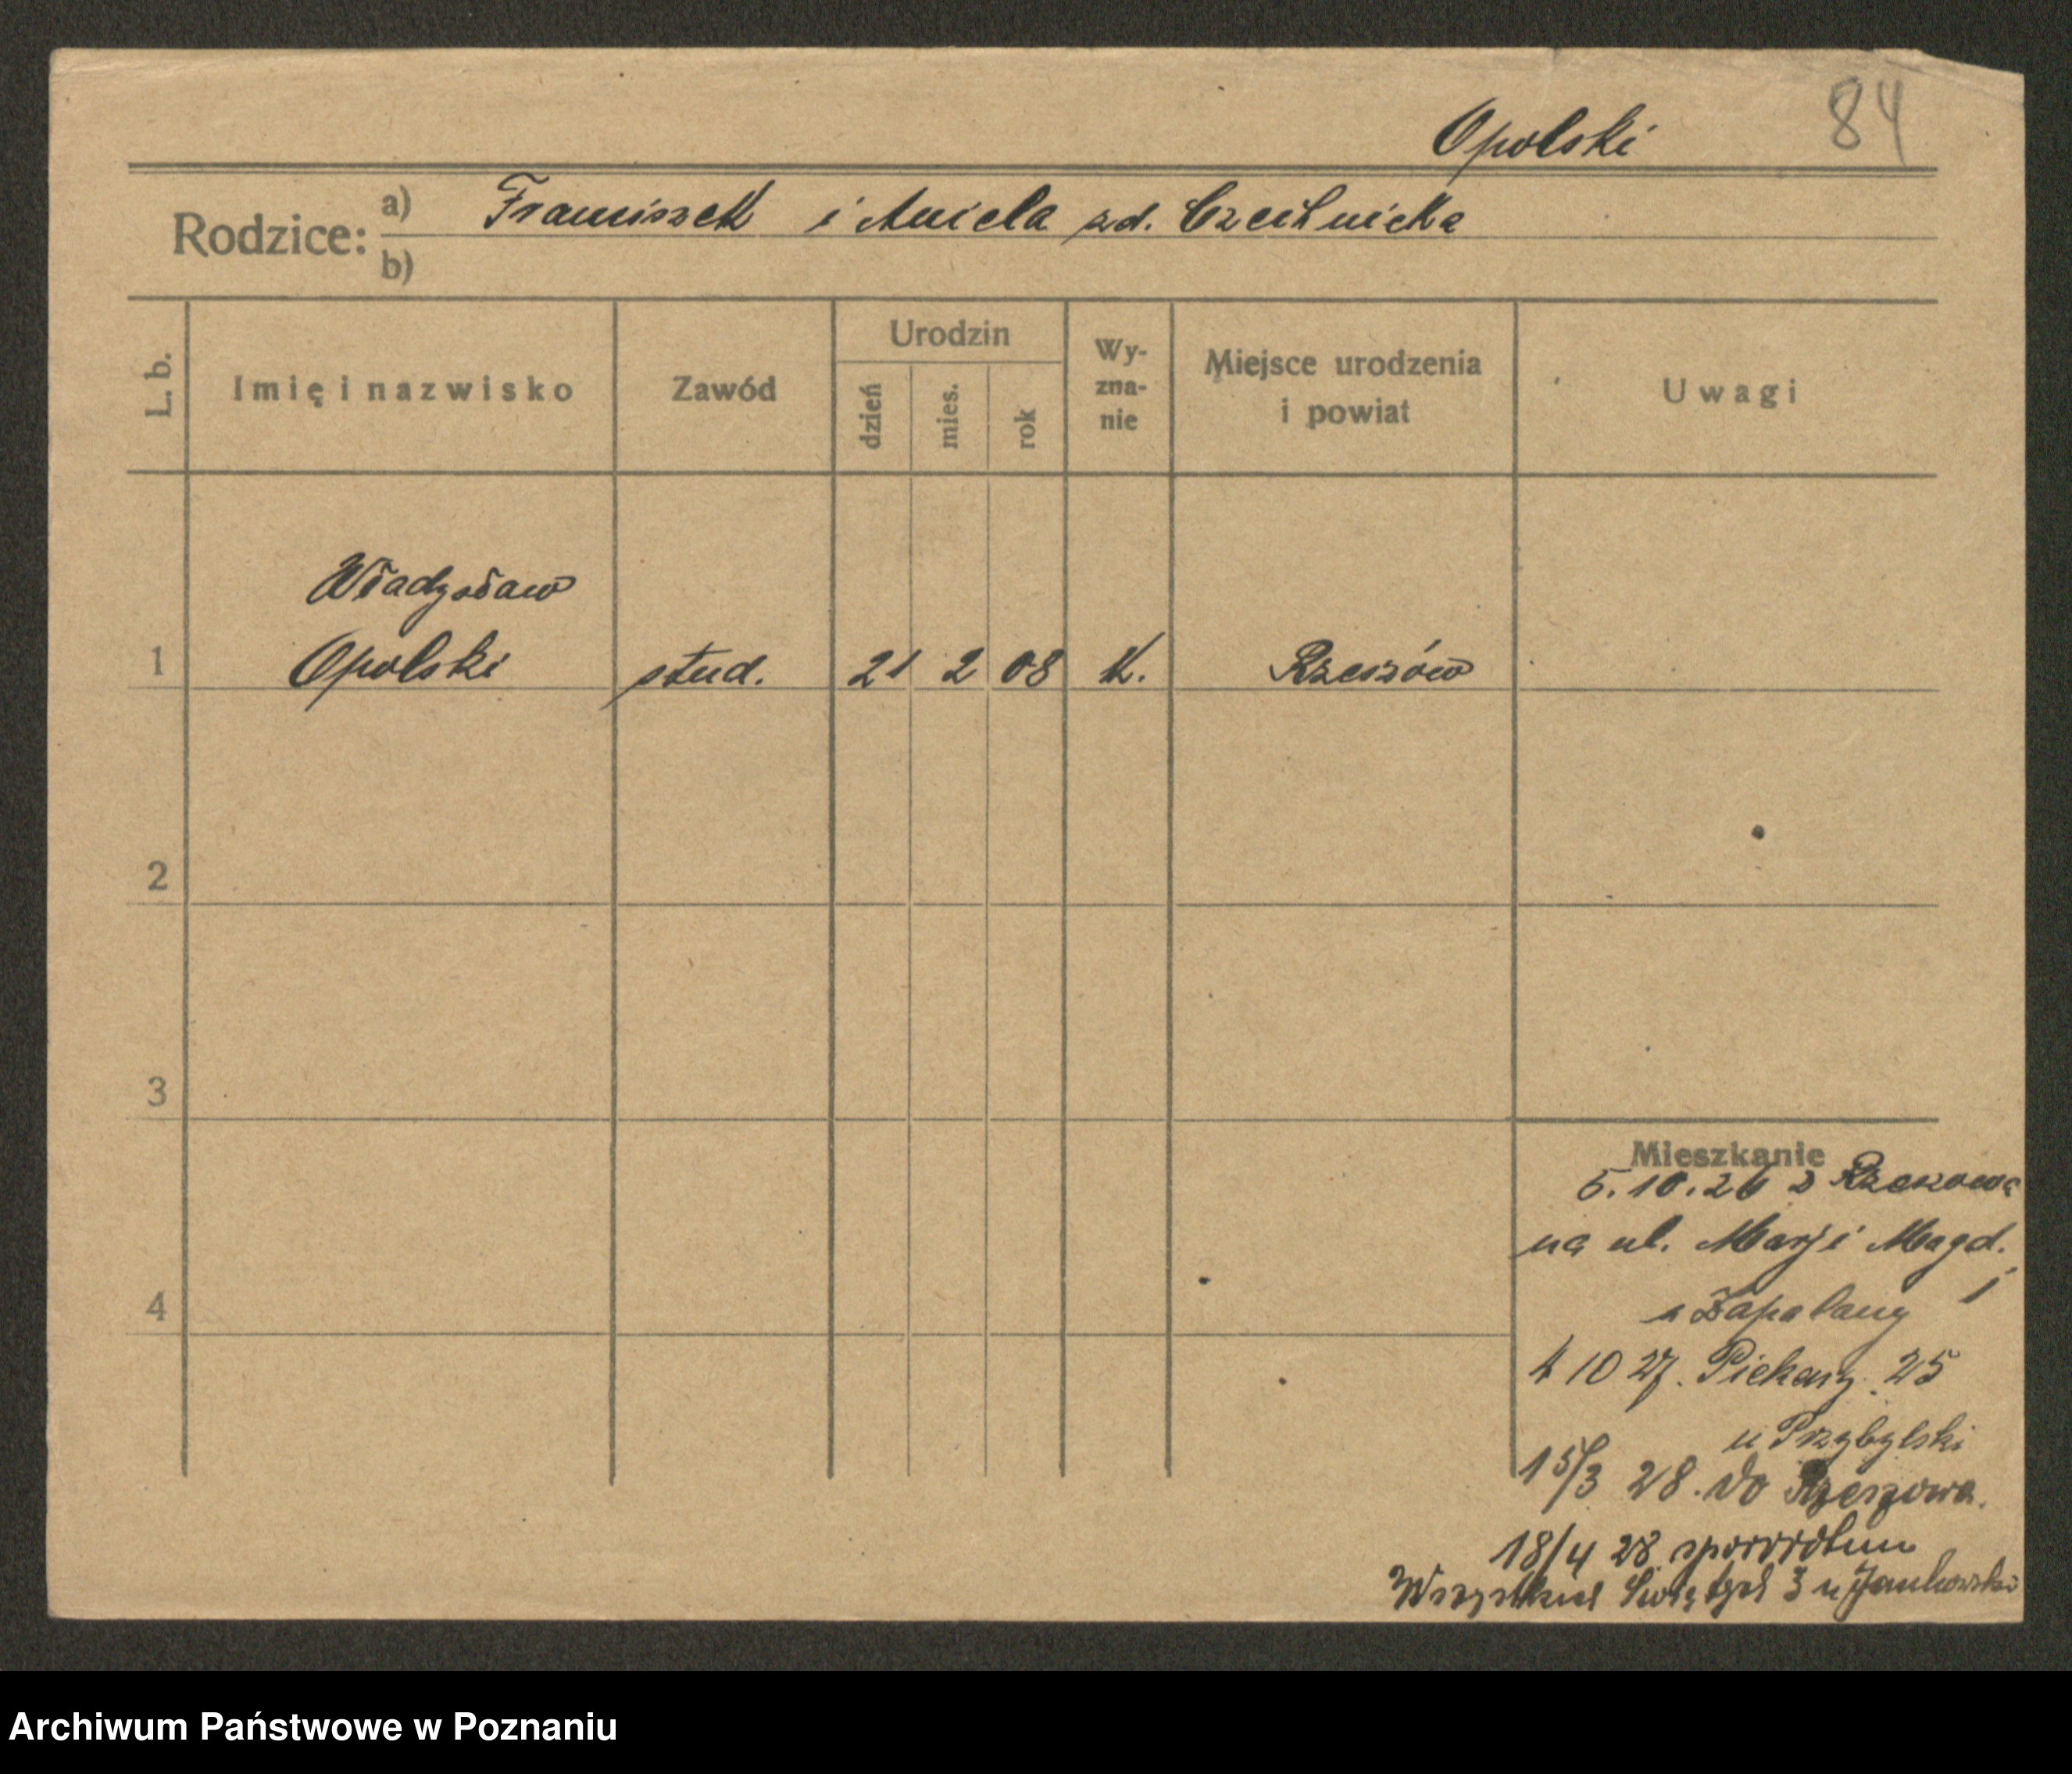 84
Opolski
Rodzice: a) Franciszek i Aniela zd. Czechnicka
b)
L. b.
Imię i nazwisko
Zawód
Urodzin
dzień
mies.
rok
Wy-
zna-
nie
Miejsce urodzenia
i powiat
Uwagi
Władysław
1 Opolski stud. 21 2 08 K. Rzeszów
2
3
4
Mieszkanie
5.10.26 z Rzeszowa
na ul. Marji Magd. 1
u
4 10 27. Piekary 25
u Przybylski
15/3 28. do Rzeszowa.
18/4 28 spowrotem
Wszystkich Świętych 3 u Jankowski
Archiwum Państwowe w Poznaniu